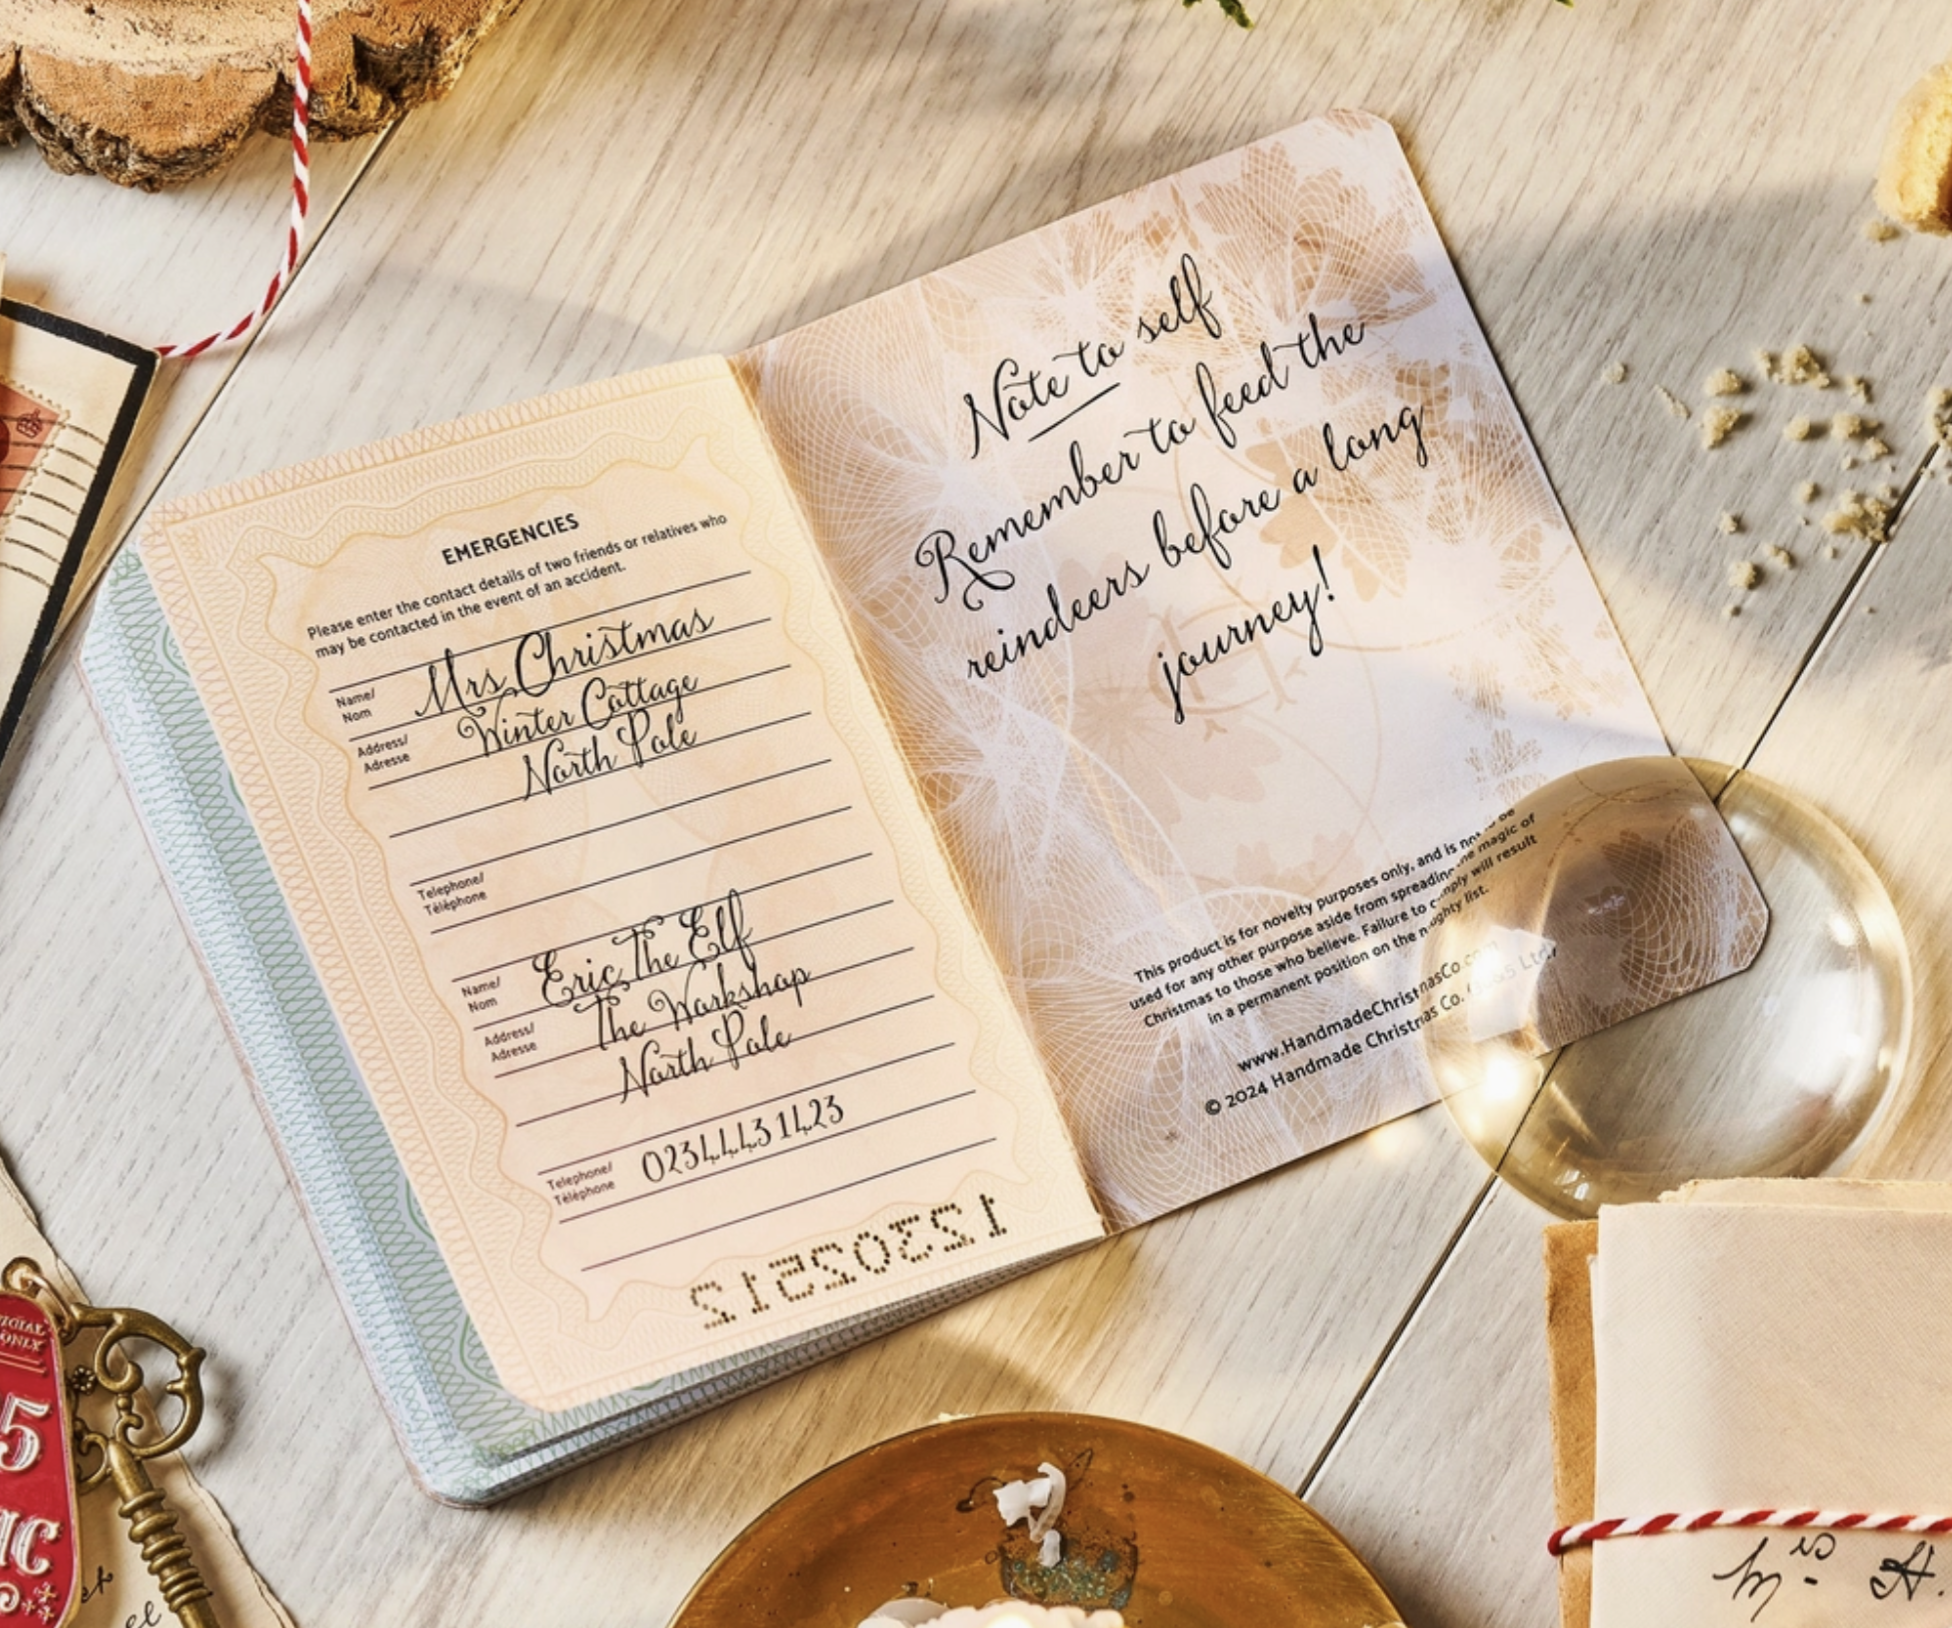 EMERGENCIES
Please enter the contact details of two friends or relatives who
may be contacted in the event of an accident.
Name/
Nom
Mrs Christmas
Address/
Adresse
Winter Cottage
North Pole
Telephone/
Téléphone
Name/
Nom
Eric The Elf
Address/
Adresse
The Workshop
North Pole
Telephone/
Téléphone
02344431423
12302512
Note to self
Remember to feed the
reindeers before a long
journey!
This product is for novelty purposes only, and is not to be
used for any other purpose aside from spreading the magic of
Christmas to those who believe. Failure to comply will result
in a permanent position on the naughty list.
www.HandmadeChristmasCo.co
© 2024 Handmade Christmas Co. Ltd.
ONLY
5
Mrs H.